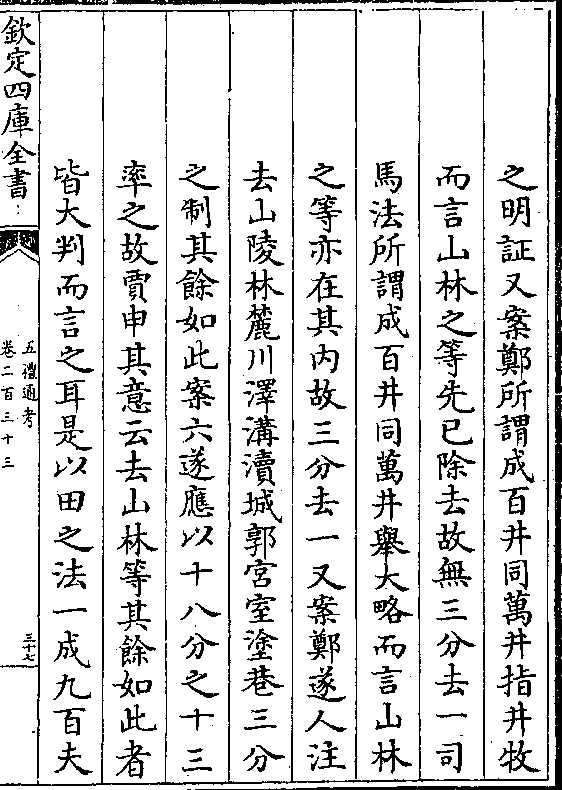 之明証又案鄭所謂成百井同萬井指井牧
而言山林之等先已除去故無三分去一司
馬法所謂成百井同萬井舉大略而言山林
之等亦在其内故三分去一又案鄭遂人注
去山陵林麓川澤溝瀆城郭宮室塗巷三分
之制其餘如此案六遂應以十八分之十三
率之故賈申其意云去山林等其餘如此者
皆大判而言之耳是以田之法一成九百夫
欽定四庫全書
五禮通考
卷二百三十三
三十七